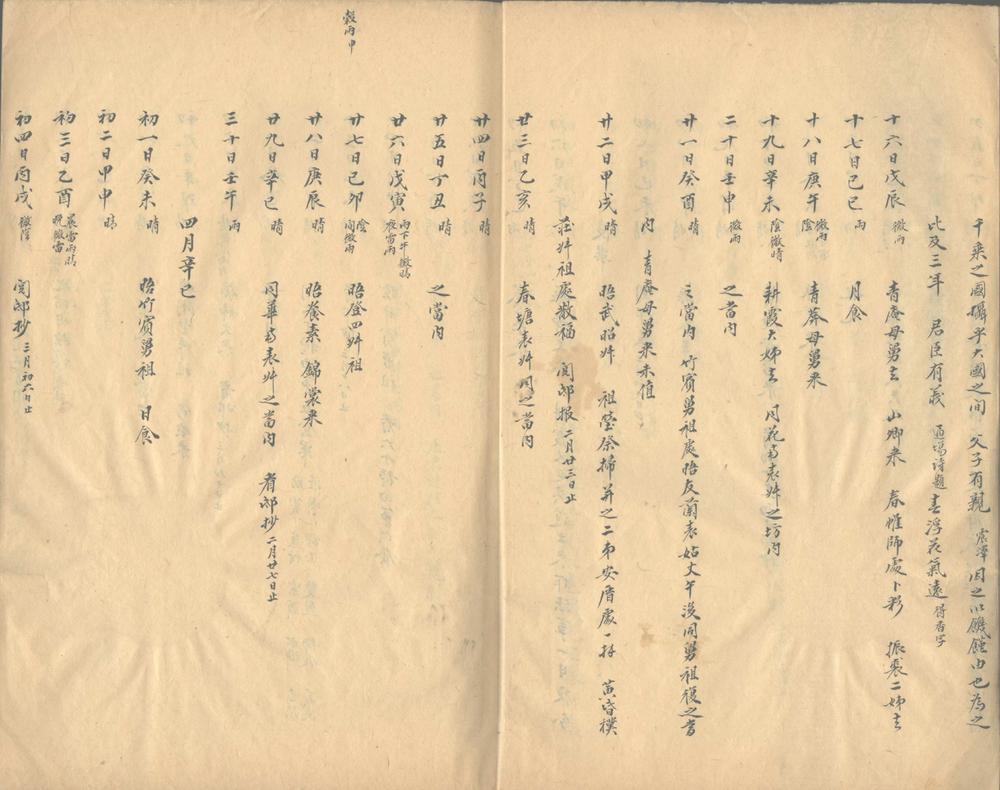 千乘之國攝乎大國之間 父子有親 震澤 因之以饑饉由也為之
比及三年 君臣有義 通場詩題 春浮花氣遠 得香字
十六日戊辰 微雨 青庵母舅去 山卿來 春帷師處卜彩 振裘二姊去
十七日己巳 雨 月食
十八日庚午 微雨陰 青莽母舅來
十九日辛未 微晴陰 耕霞大姊去 同花南表姊之坊内
二十日壬申 微雨 之當内
廿一日癸酉 晴 之當内 竹賓舅祖處晤友蘭表姑丈午後同舅祖復之當
内 青庵母舅來未值
廿二日甲戌 晴 晤武昭姊 祖塋祭掃并之二弟安厝處一拜 黃昏樸
莊姊祖處散福 閱邸報 二月廿三日止
廿三日乙亥 晴 春塘表姊同之當内
廿四日丙子 晴
廿五日丁丑 晴 之當内
廿六日戊寅 雨下午微晴夜雷雨
穀雨中
廿七日己卯 陰間微雨 晤登四姊祖
廿八日庚辰 晴 晤養素 錦裳來
廿九日辛巳 晴 同華南表姊之當内 看邸抄 二月廿七日止
三十日壬午 雨
四月辛巳
初一日癸未 晴 晤竹賓舅祖 日食
初二日甲申 晴
初三日乙酉 晨雷雨晴晚微雷
初四日丙戌 微陰 閱邸抄 三月初六日止